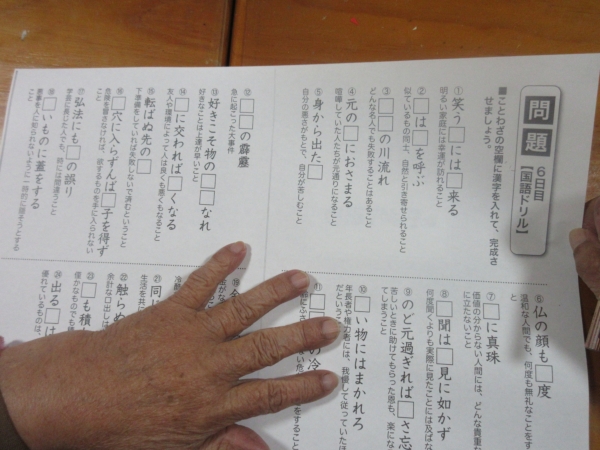 問題
6日目
【国語ドリル】
■ことわざの空欄に漢字を入れて、完成さ
せましょう。
①笑う□には□来る
明るい家庭には幸運が訪れること
②□は□を呼ぶ
似ているもの同士、自然と引き寄せられること
③□□の川流れ
どんな名人でも失敗することはあること
④元の□におさまる
喧嘩していた人たちが元通りになること
⑤身から出た□
自分の悪さがもとで、自分が苦しむこと
⑥仏の顔も□度
温和な人間でも、何度も無礼なことをす
と
⑦□に真珠
価値の分からない人間には、どんな貴重な
に立たないこと
⑧□聞は□見に如かず
何度聞くよりも実際に見たことには及ばな
⑨のど元過ぎれば□さ忘
苦しいときに助けてもらった恩も、楽にな
てしまうこと
⑩□い物にはまかれろ
年長者や権力者には、我慢して従っていたほ
だという
⑪□
の冷
⑫□□の霹靂
急に起こった大事件
⑬好きこそ物の□□なれ
好きなことは上達が早いこと
⑭□に交われば□くなる
友人や環境によって人は良くも悪くもなること
⑮転ばぬ先の□
下準備をしていれば失敗しないで済むということ
⑯□穴に入らずんば□子を得ず
危険を冒さなければ、欲するものを手に入れられない
こと
⑰弘法にも□の誤り
学芸に長じた人でも、時には間違うこと
⑱□いものに蓋をする
悪事を人に知られないように一時的に隠そうとする
こと
㉑同
生活を共に
㉒触らぬ
余計な口出しは
㉓□も積
僅かなものでも積
㉔出る□は
優れているものは、